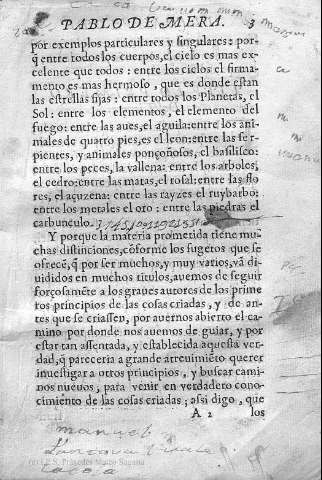 PABLO DE MERA. 3
por exemplos particulares y singulares: porq̃
entre todos los cuerpos, el cielo es mas excelente
que todos: entre los cielos el firmamento
es mas hermoso, que es donde estan
las estrellas fijas: entre todos los Planetas, el
Sol: entre los elementos, el elemento del
fuego: entre las aues, el aguila: entre los animales
de quatro pies, es el leon: entre las serpientes,
y animales ponçoñosos, el basilisco:
entre los peces, la vallena: entre los arboles,
el cedro: entre las matas, el rosal: entre las flores,
el açuzena: entre las rayzes el ruybarbo:
entre los metales el oro: entre las piedras el
carbunculo.
Y porque la materia prometida tiene muchas
distinciones, cõforme los sugetos que se
ofrecẽ, q̃ por ser muchos, y muy varios, vã diuididos
en muchos titulos, auemos de seguir
forçosamẽte a los graues autores de los primeros
principios de las cosas criadas, y de antes
que se criassen, por auernos abierto el camino
por donde nos auemos de guiar, y por
estar tan assentada, y establecida aquesta verdad,
q̃ pareceria a grande atreuimiẽto querer
inuestigar a otros principios, y buscar caminos
nueuos; para venir en verdadero conocimiento
de las cosas criadas; assi digo, que
A 2 los
manuel